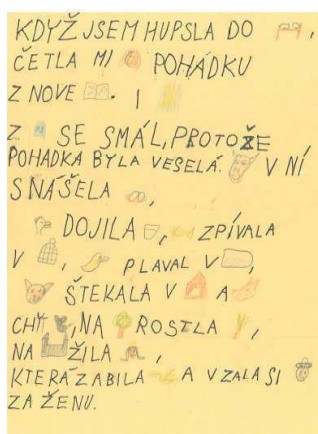 KDYŽ JSEM HUPSLA DO ,
ČETLA MI POHÁDKU
Z NOVE . I
Z SE SMÁL, PROTOŽE
POHADKA BYLA VESELÁ. V NÍ
SNÁŠELA ,
DOJILA , ZPÍVALA
V , PLAVAL V ,
ŠTEKALA V A
CHY , NA ROSTLA ,
NA ŽILA ,
KTERÁ ZABILA A VZALA SI
ZA ŽENU.